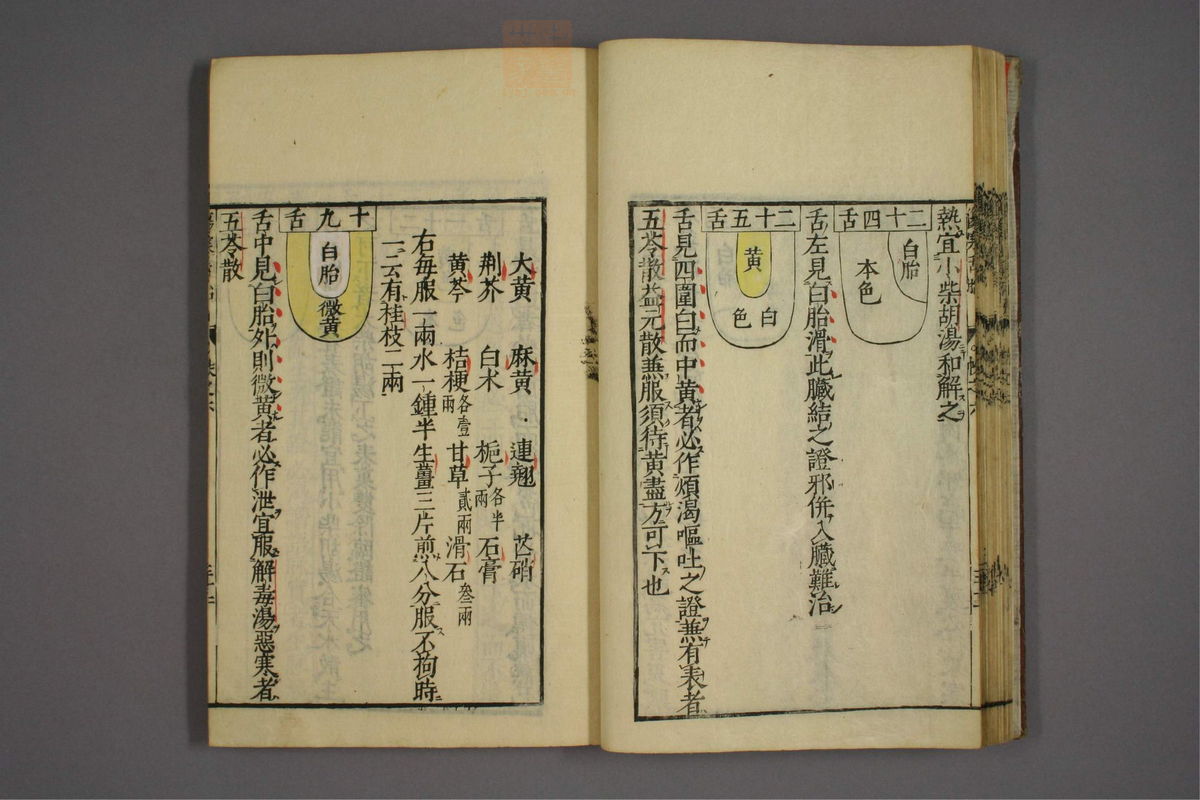 熱宜小柴胡湯和解之
舌四十二
白胎
本色
舌左見白胎滑此臟結之證邪併入臟難治
舌五十二
黄
白色
舌見四圍白而中黄者必作煩渴嘔吐之證兼有表者
五苓散益元散兼服須待黄盡方可下也
大黄 麻黄 連翹 芒硝
荆芥 白术 梔子各半兩 石膏
黄芩 桔梗各壹兩 甘草貳兩 滑石叁兩
右每服一兩水一鍾半生薑三片煎八分服不拘時
一云有桂枝二兩
舌九十
白胎
微黄
舌中見白胎外則微黄者必作泄宜服解毒湯惡寒者
五苓散